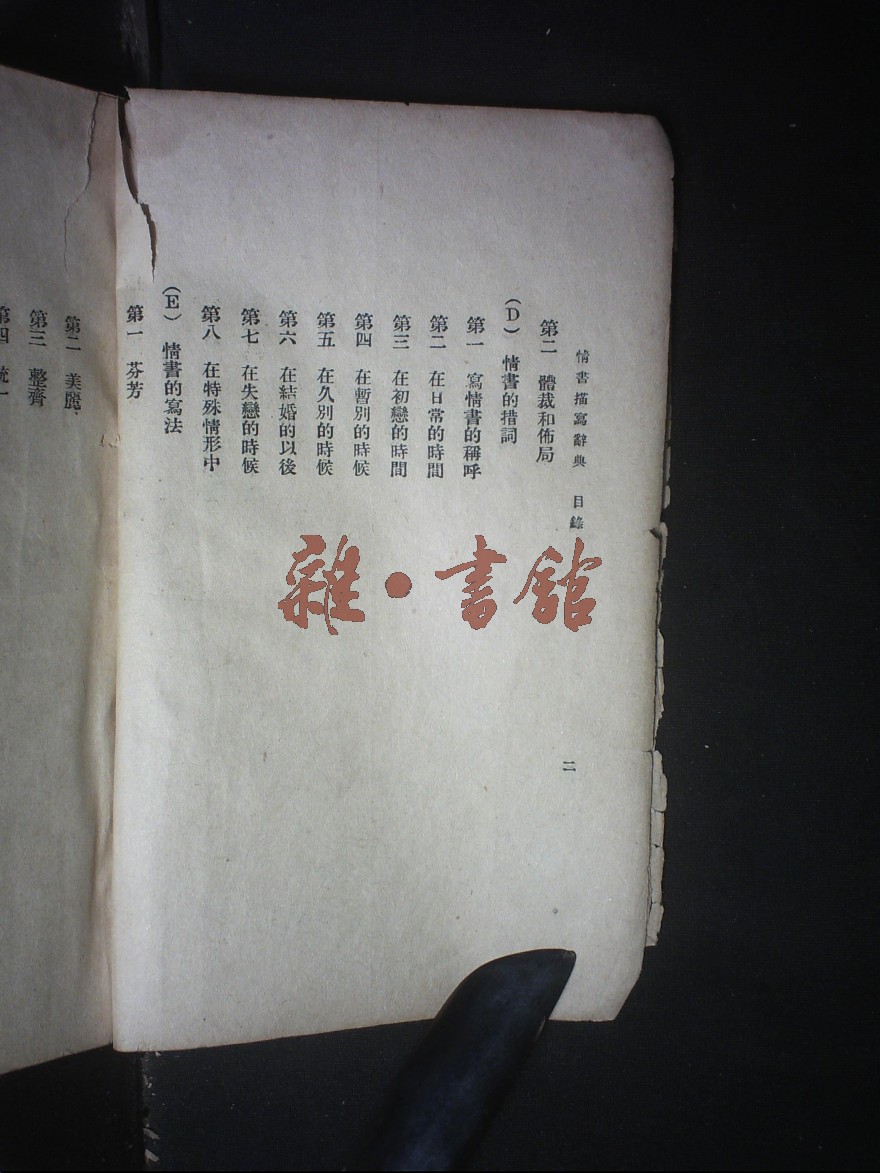 情書描寫辭典 目錄
二
第二 體裁和佈局
(D) 情書的措詞
第一 寫情書的稱呼
第二 在日常的時間
第三 在初戀的時間
第四 在暫別的時候
第五 在久別的時候
第六 在結婚的以後
第七 在失戀的時候
第八 在特殊情形中
(E) 情書的寫法
第一 芬芳
第二 美麗
第三 整齊
第四 統一
雜·書館